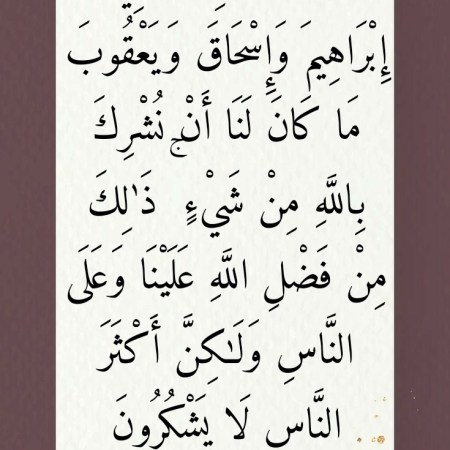 إِبْرَاهِيمَ وَإِسْحَاقَ وَيَعْقُوبَ
مَا كَانَ لَنَا أَنْ نُشْرِكَ
بِاللَّهِ مِنْ شَيْءٍ ۚ ذَٰلِكَ
مِنْ فَضْلِ اللَّهِ عَلَيْنَا وَعَلَى
النَّاسِ وَلَٰكِنَّ أَكْثَرَ
النَّاسِ لَا يَشْكُرُونَ